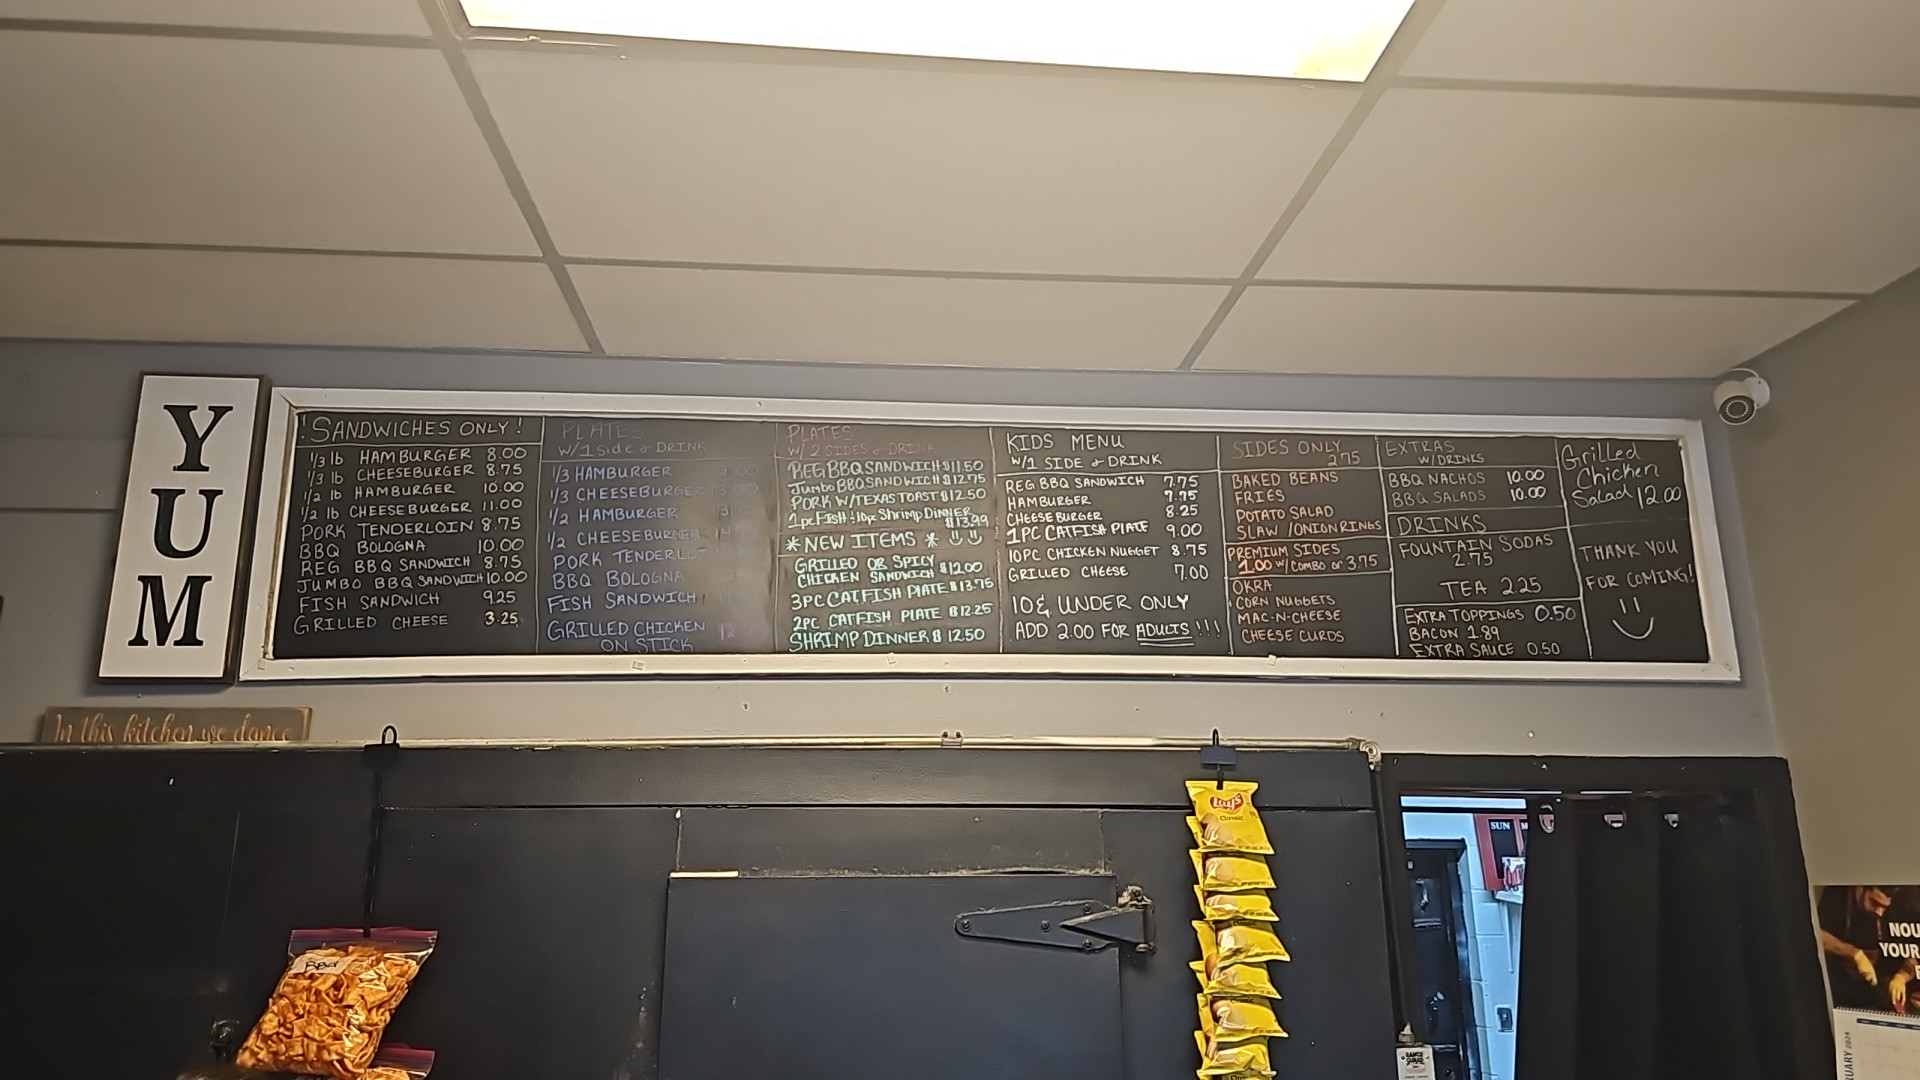 YUM
In this kitchen we dance
! SANDWICHES ONLY !
1/3 lb HAMBURGER 8.00
1/3 lb CHEESEBURGER 8.75
1/2 lb HAMBURGER 10.00
1/2 lb CHEESEBURGER 11.00
PORK TENDERLOIN 8.75
BBQ BOLOGNA 10.00
REG BBQ SANDWICH 8.75
JUMBO BBQ SANDWICH 10.00
FISH SANDWICH 9.25
GRILLED CHEESE 3.25
PLATES
W/ 1 Side & DRINK
1/3 HAMBURGER
1/3 CHEESEBURGER
1/2 HAMBURGER
1/2 CHEESEBURGER
PORK TENDERLOIN
BBQ BOLOGNA
FISH SANDWICH
GRILLED CHICKEN
ON STICK
PLATES
W/ 2 SIDES & DRINK
REG BBQ SANDWICH $11.50
Jumbo BBQ SANDWICH $12.75
PORK W/TEXAS TOAST $12.50
1pc FISH 10pc Shrimp DINNER
$13.99
* NEW ITEMS *
GRILLED OR SPICY
CHICKEN SANDWICH $12.00
3PC CATFISH PLATE $13.75
2PC CATFISH PLATE $12.25
SHRIMP DINNER $12.50
KIDS MENU
W/1 SIDE & DRINK
REG BBQ SANDWICH 7.75
HAMBURGER 7.75
CHEESEBURGER 8.25
1PC CATFISH PLATE 9.00
10PC CHICKEN NUGGET 8.75
GRILLED CHEESE 7.00
10 & UNDER ONLY
ADD 2.00 FOR ADULTS !!!
SIDES ONLY
2.75
BAKED BEANS
FRIES
POTATO SALAD
SLAW / ONION RINGS
PREMIUM SIDES
1.00 W/ COMBO OR 3.75
OKRA
CORN NUGGETS
MAC-N-CHEESE
CHEESE CURDS
EXTRAS
W/DRINKS
BBQ NACHOS 10.00
BBQ SALADS 10.00
DRINKS
FOUNTAIN SODAS
2.75
TEA 2.25
EXTRA TOPPINGS 0.50
BACON 1.89
EXTRA SAUCE 0.50
Grilled
Chicken
Salad 12.00
THANK YOU
FOR COMING!
Lay's
Classic
BBQ
SUN M
NOU
YOUR